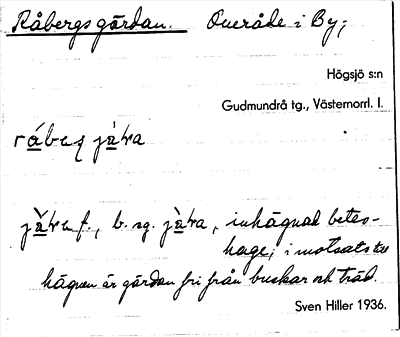 Råbergsgärdan. Område i By;
Högsjö s:n
Gudmundrå tg., Västernorrl. l.
inhägnad betes-
hage; i motsats till
hägnen är gärdan fri från buskar och träd.
Sven Hiller 1936.